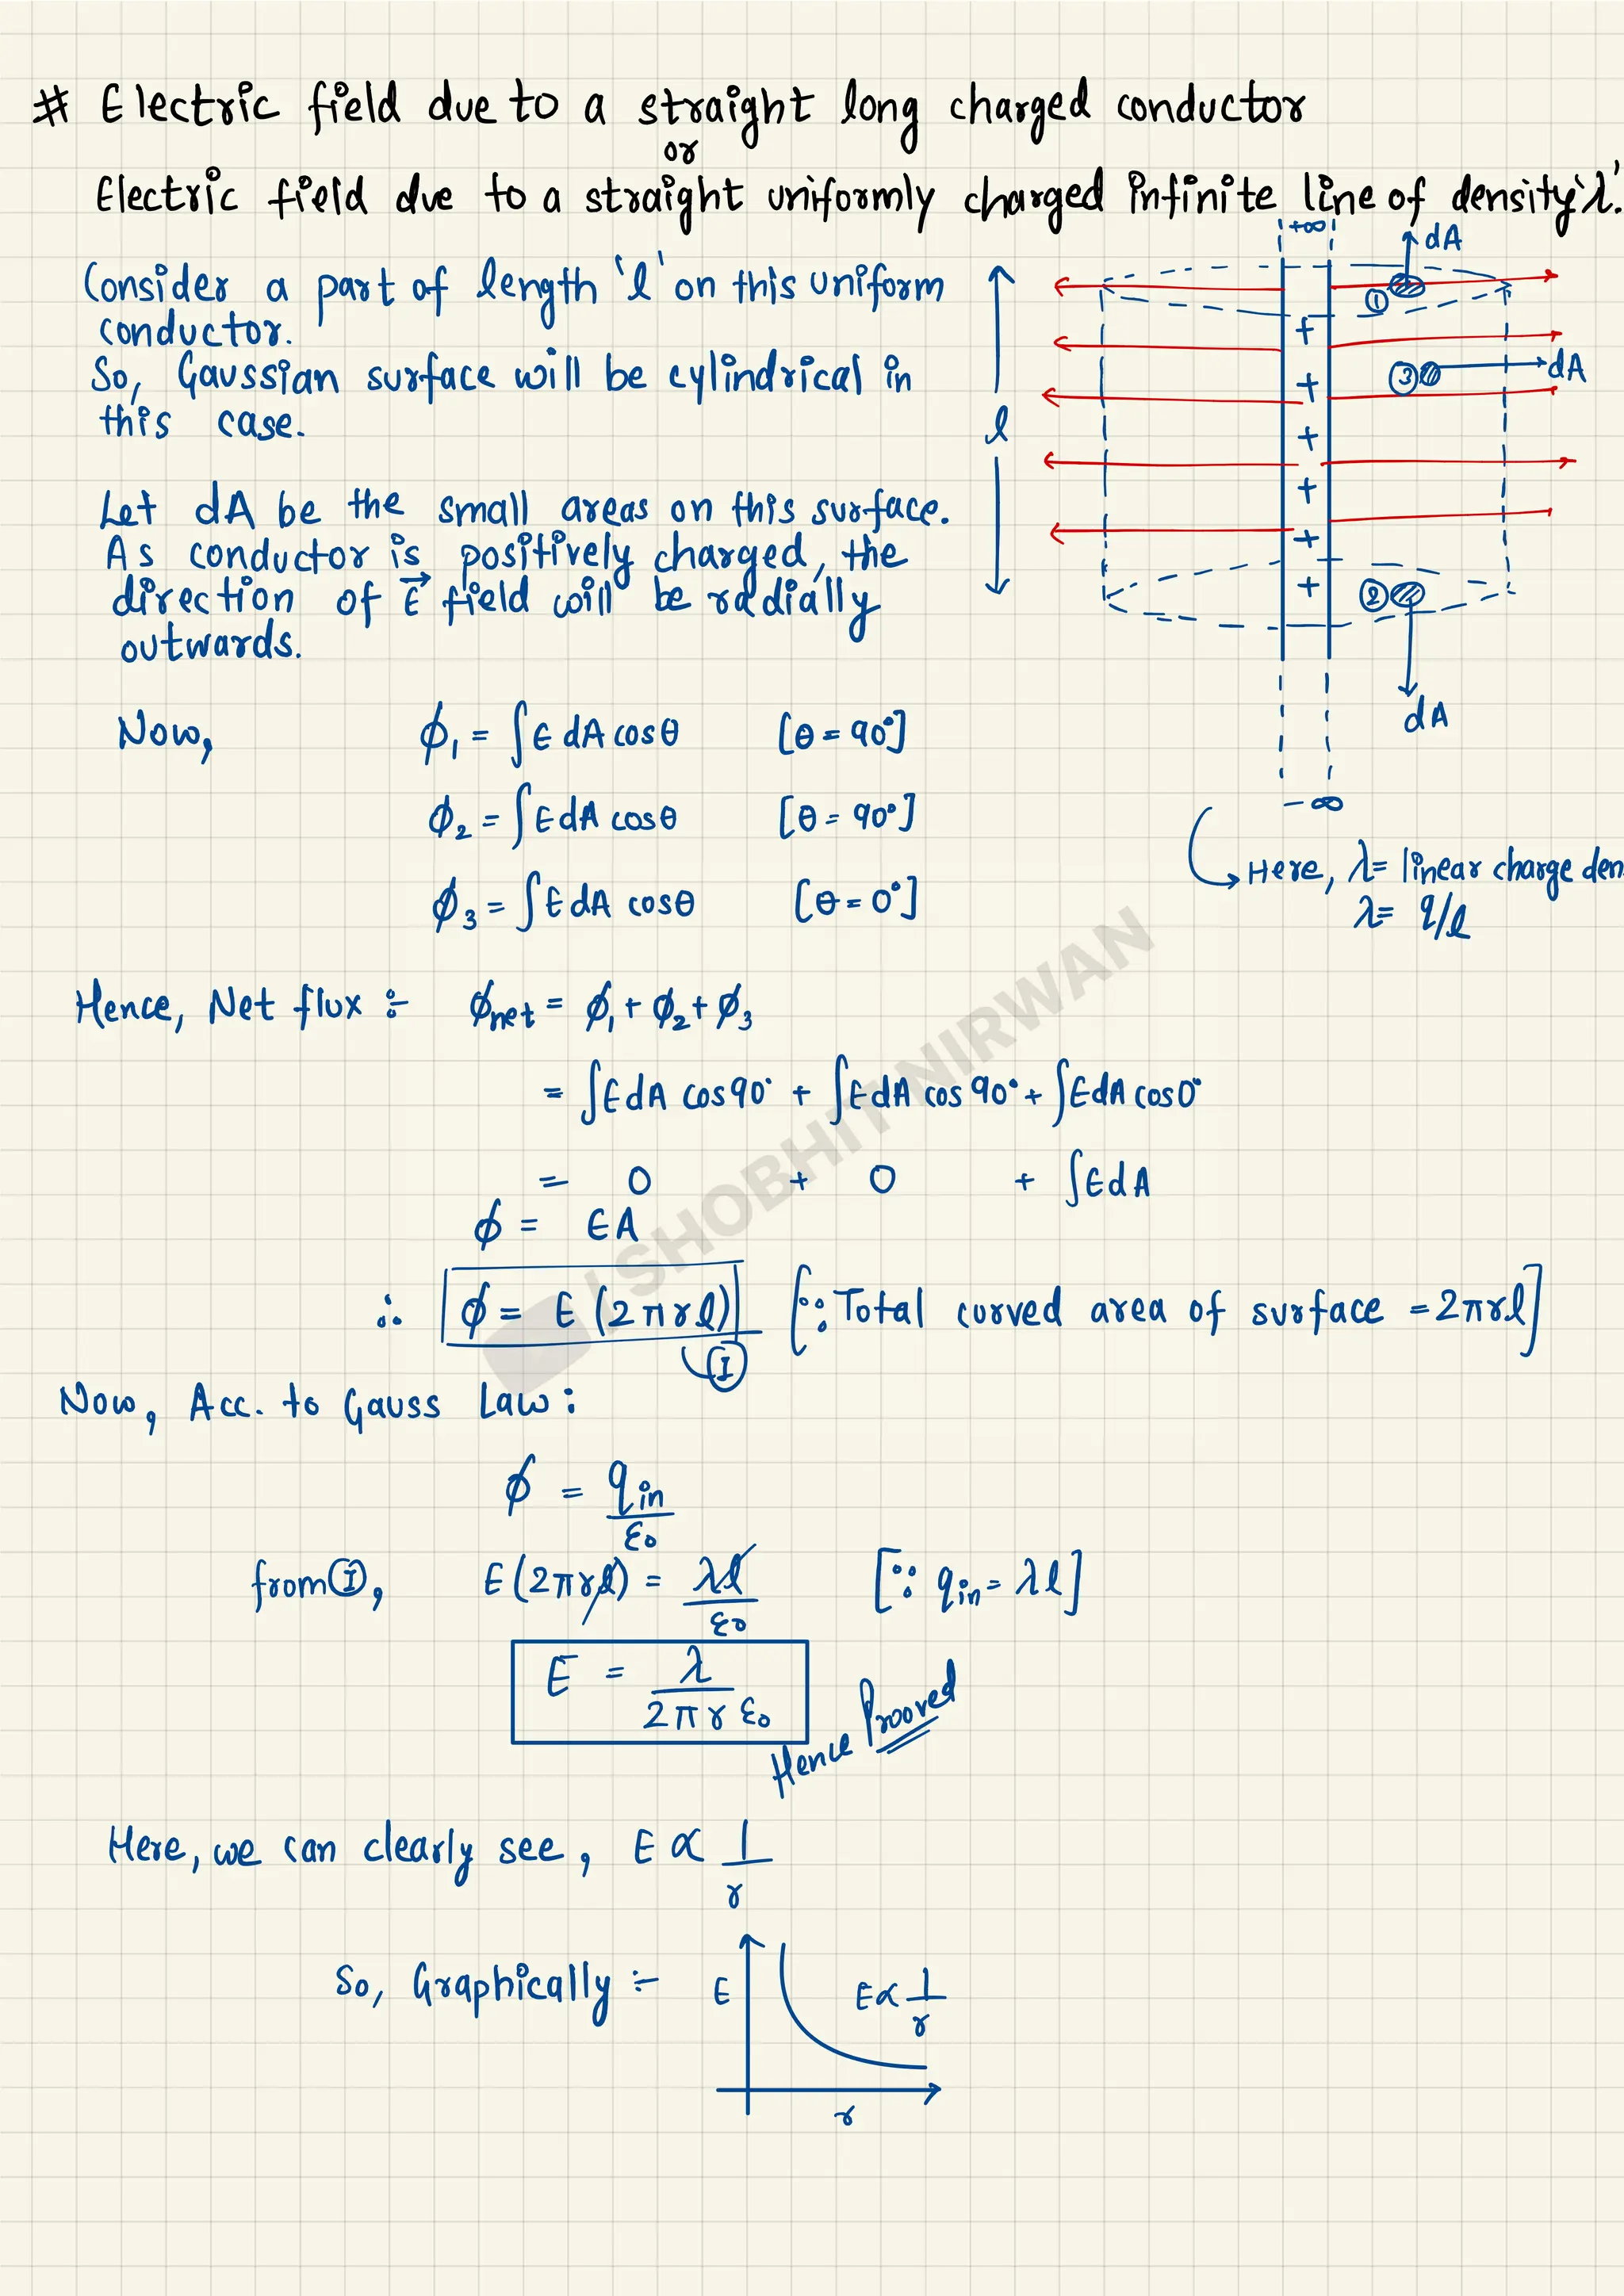 # Electric field due to a straight long charged conductor
or
Electric field due to a straight uniformly charged infinite line of density 'λ'.
Consider a part of length 'l' on this uniform
conductor.
So, Gaussian surface will be cylindrical in
this case.
Let dA be the small areas on this surface.
As conductor is positively charged, the
direction of E⃗ field will be radially
outwards.
+∞
dA
①
+
③ dA
+
l
+
+
+
+
②
dA
-∞
Here, λ = linear charge den
λ = q/l
Now, ϕ₁ = ∫E dA cosθ [θ = 90°]
ϕ₂ = ∫E dA cosθ [θ = 90°]
ϕ₃ = ∫E dA cosθ [θ = 0°]
Hence, Net flux :- ϕnet = ϕ₁ + ϕ₂ + ϕ₃
= ∫E dA cos90° + ∫E dA cos 90° + ∫E dA cos0°
= 0 + 0 + ∫E dA
ϕ = EA
∴ ϕ = E (2πrl) [∵ Total curved area of surface = 2πrl]
Ⓘ
Now, Acc. to Gauss Law :
ϕ = qin/ε₀
from Ⓘ, E(2πrl) = λl/ε₀ [∵ qin = λl]
E = λ/2πrε₀
Hence Prooved
Here, we can clearly see, E ∝ 1/r
So, Graphically :- E E ∝ 1/r
r
/ SHOBHIT NIRWAN